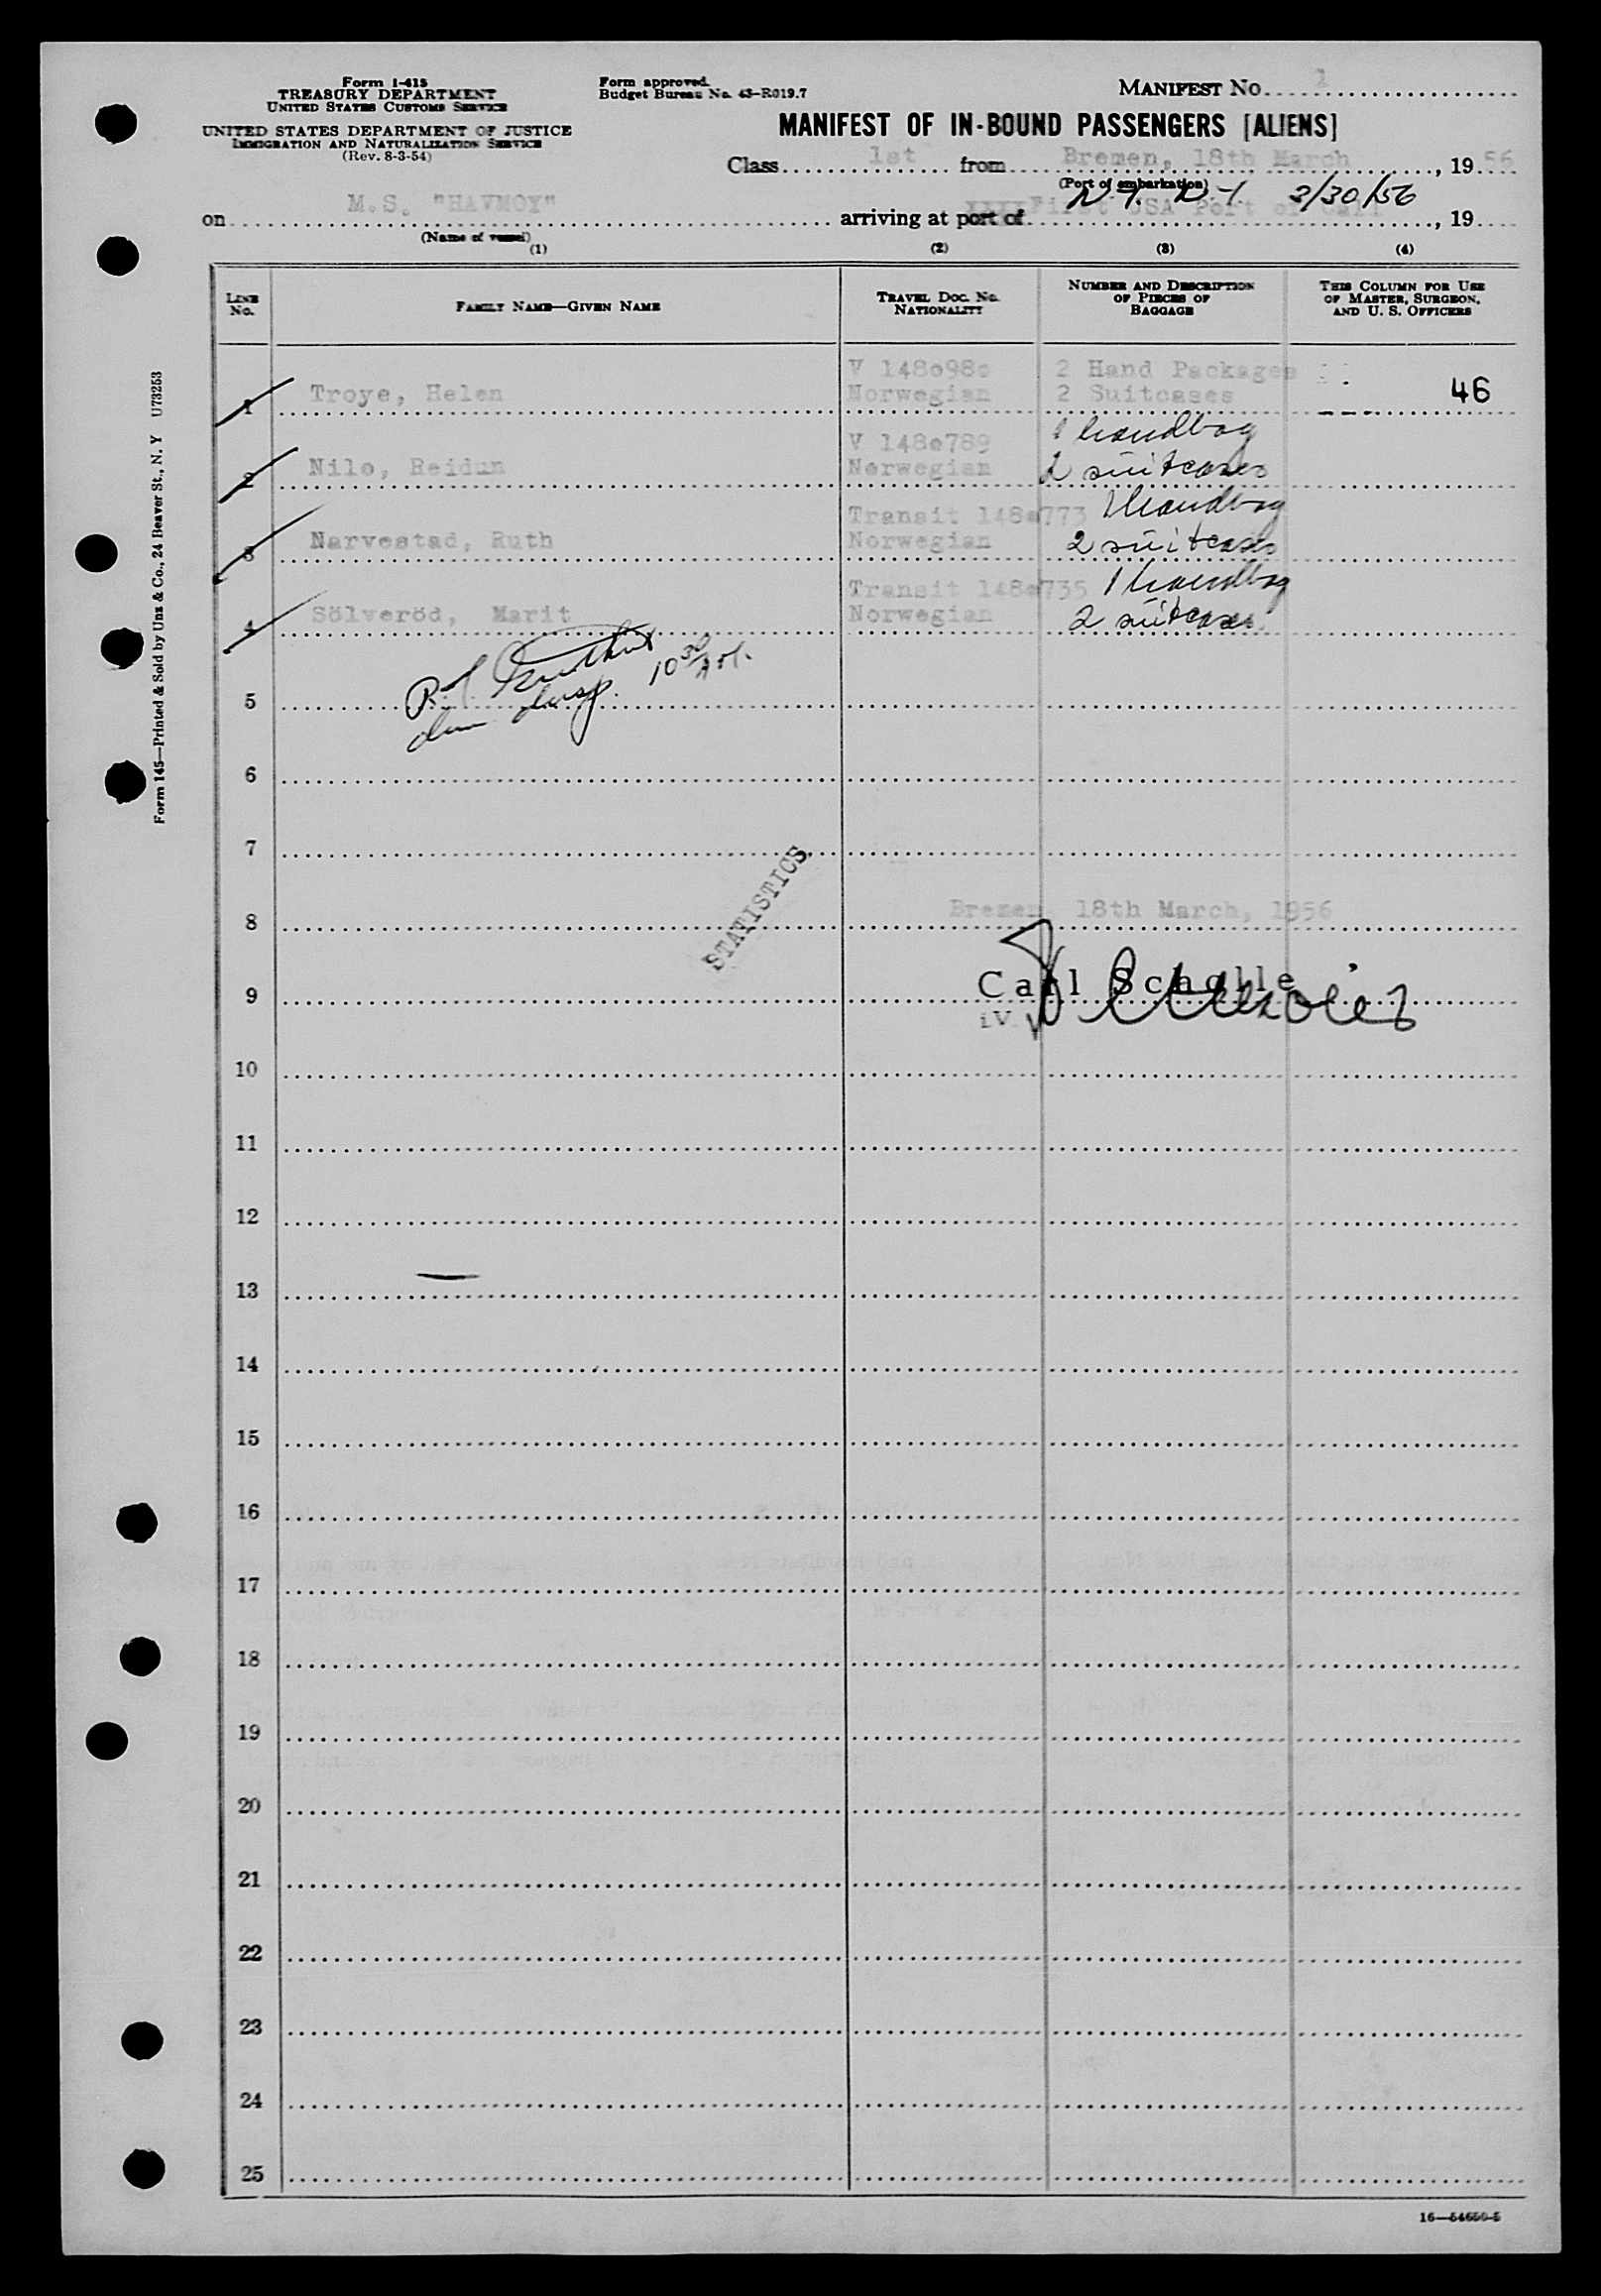 Form I-415
TREASURY DEPARTMENT
UNITED STATES CUSTOMS SERVICE
UNITED STATES DEPARTMENT OF JUSTICE
IMMIGRATION AND NATURALIZATION SERVICE
(Rev. 8-3-54)
Form approved.
Budget Bureau No. 43-R019.7
MANIFEST NO. 1
MANIFEST OF IN-BOUND PASSENGERS [ALIENS]
Class 1st from Bremen, 18th March, 1956
(Port of embarkation)
on M.S. "HAVMOY" arriving at port of First USA Port of Call N.Y. N.Y. 3/30/56, 19
(Name of vessel)
(1) (2) (3) (4)
LINE No. FAMILY NAME—GIVEN NAME TRAVEL DOC. NO. NATIONALITY NUMBER AND DESCRIPTION OF PIECES OF BAGGAGE THIS COLUMN FOR USE OF MASTER, SURGEON, AND U. S. OFFICERS
V 148o98o 2 Hand Packages
1 Troye, Helen Norwegian 2 Suitcases 46
V 148o789 1 handbag
2 Nilo, Reidun Norwegian 2 suitcases
Transit 148o773 1 handbag
3 Narvestad, Ruth Norwegian 2 suitcases
Transit 148o735 1 handbag
4 Sölveröd, Marit Norwegian 2 suitcases
10 30 AM.
5
6
7
STATISTICS
Bremen, 18th March, 1956
8
Carl Scholle
9
i.V.
10
11
12
13
14
15
16
17
18
19
20
21
22
23
24
25
16—54650-5
Form 145—Printed & Sold by Unz & Co., 24 Beaver St., N. Y U73253